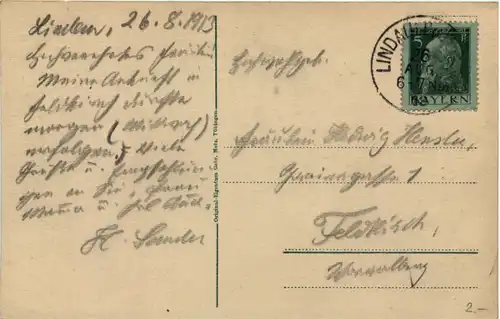 Lindau, 26.8.1913
Hochverehrtes Fräulein
Meine Ankunft in
Feldkirch dürfte
morgen (Mittwoch)
erfolgen. Viele
Grüße u.
an Sie, Frau
Mama u.
H. Sander
Original-Eigentum Gebr. Metz, Tübingen
LINDAU
26
AUG
6-7N
5
BAYERN
Hochwohlgeb.
Fräulein Hedwig Hensler
1
Feldkirch,
Vorarlberg
2.-